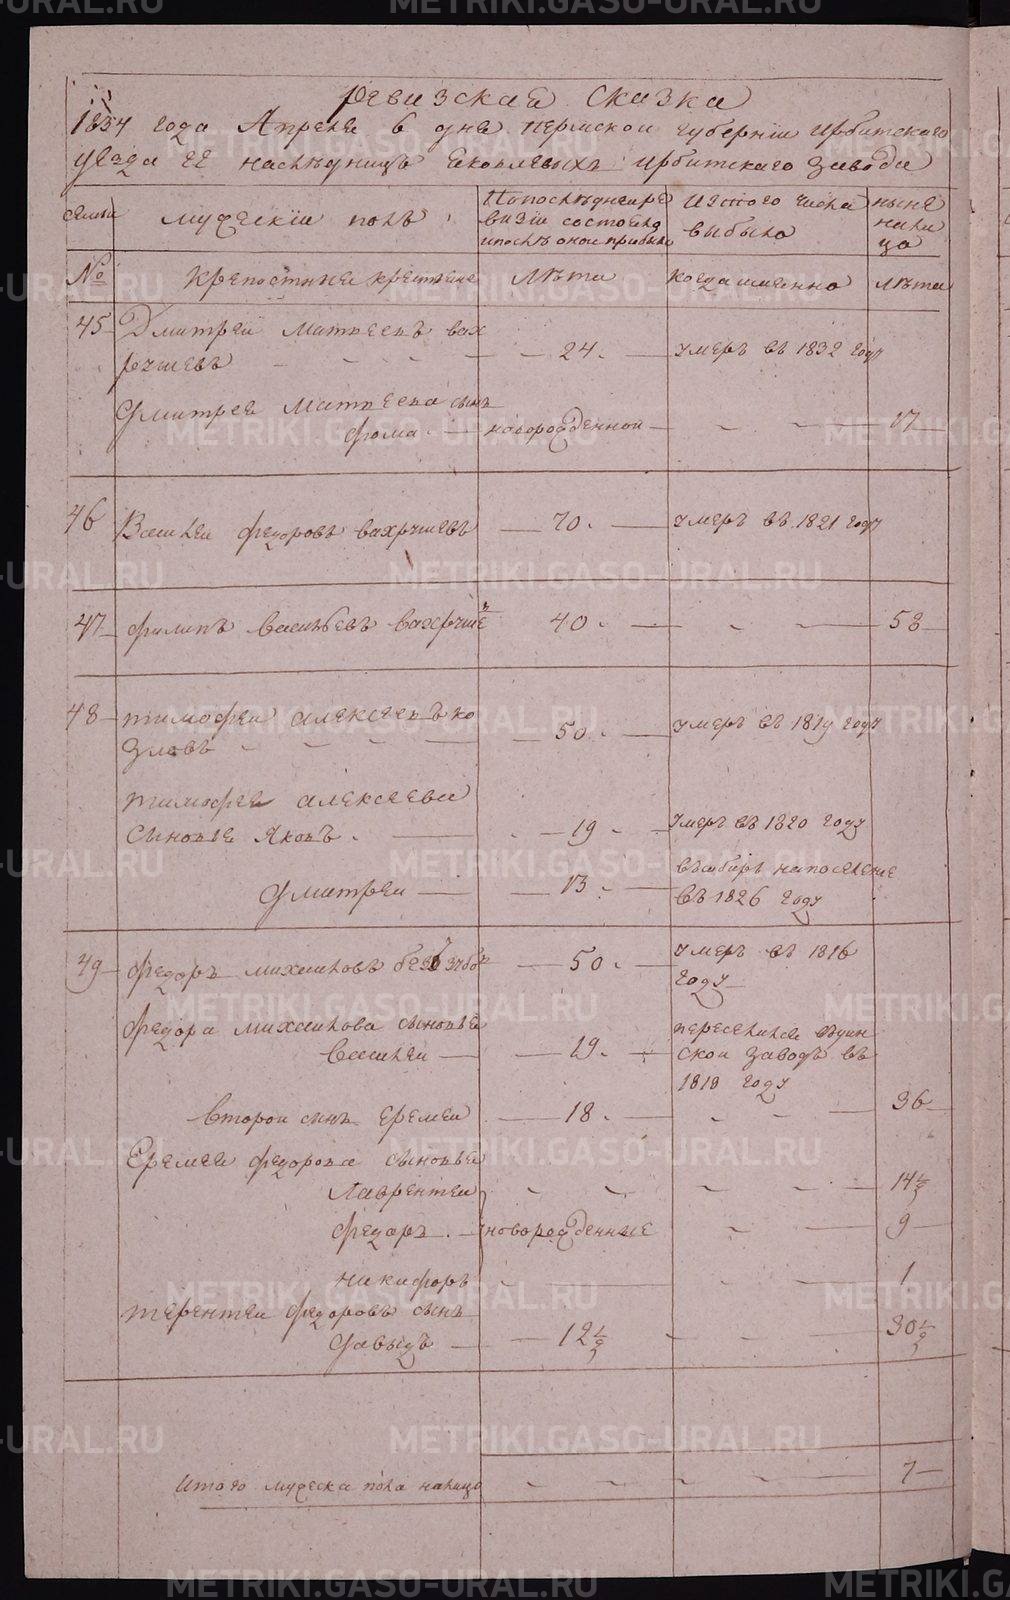 Ревизская Сказка
1834 года Апреля 6 дня пермской губернии ирбитскаго
уезда ее наследницъ Яковлевыхъ ирбитскаго завода
семьи
мужескiй полъ
По последней ре
визiи состояло
и после оной прибыло
Изтого числа
выбыло
ныне
нали
цо
№
крепостные крестьяне
Лѣта
когда именно
Лѣта
45 Дмитрей Матвеевъ вах
рушевъ — 24. — умеръ въ 1832 году
Дмитрея Матвеева сынъ
фома — новорожденной — 17
46 Василей федоровъ вахрушевъ — 70. — умеръ въ 1821 году
47 филипъ Васильевъ Вахруше въ 40 — 58
48 тимофей алексеевъ ко
зловъ — 50. — умеръ въ 1819 году
тимофея алексеева
сыновья Яковъ. — 19 — Умеръ въ 1820 году
Дмитрей — 13. — въсибирь напоселение
въ 1826 году
49 федоръ михаиловъ беззубовъ — 50. — умеръ въ 1816
году
федора михаилова сыновья
Василей — 29. — переселился въуин
ской заводъ въ
1818 году
второй сынъ еремей — 18. — 36
Еремея федорова сыновья
Лаврентей — 14½
федоръ. новорожденные — 9
никифоръ — 1
терентей федоровъ сынъ
давыдъ — 12½ — 30½
Итого мужеска пола налицо — 7
METRIKI.GASO-URAL.RU